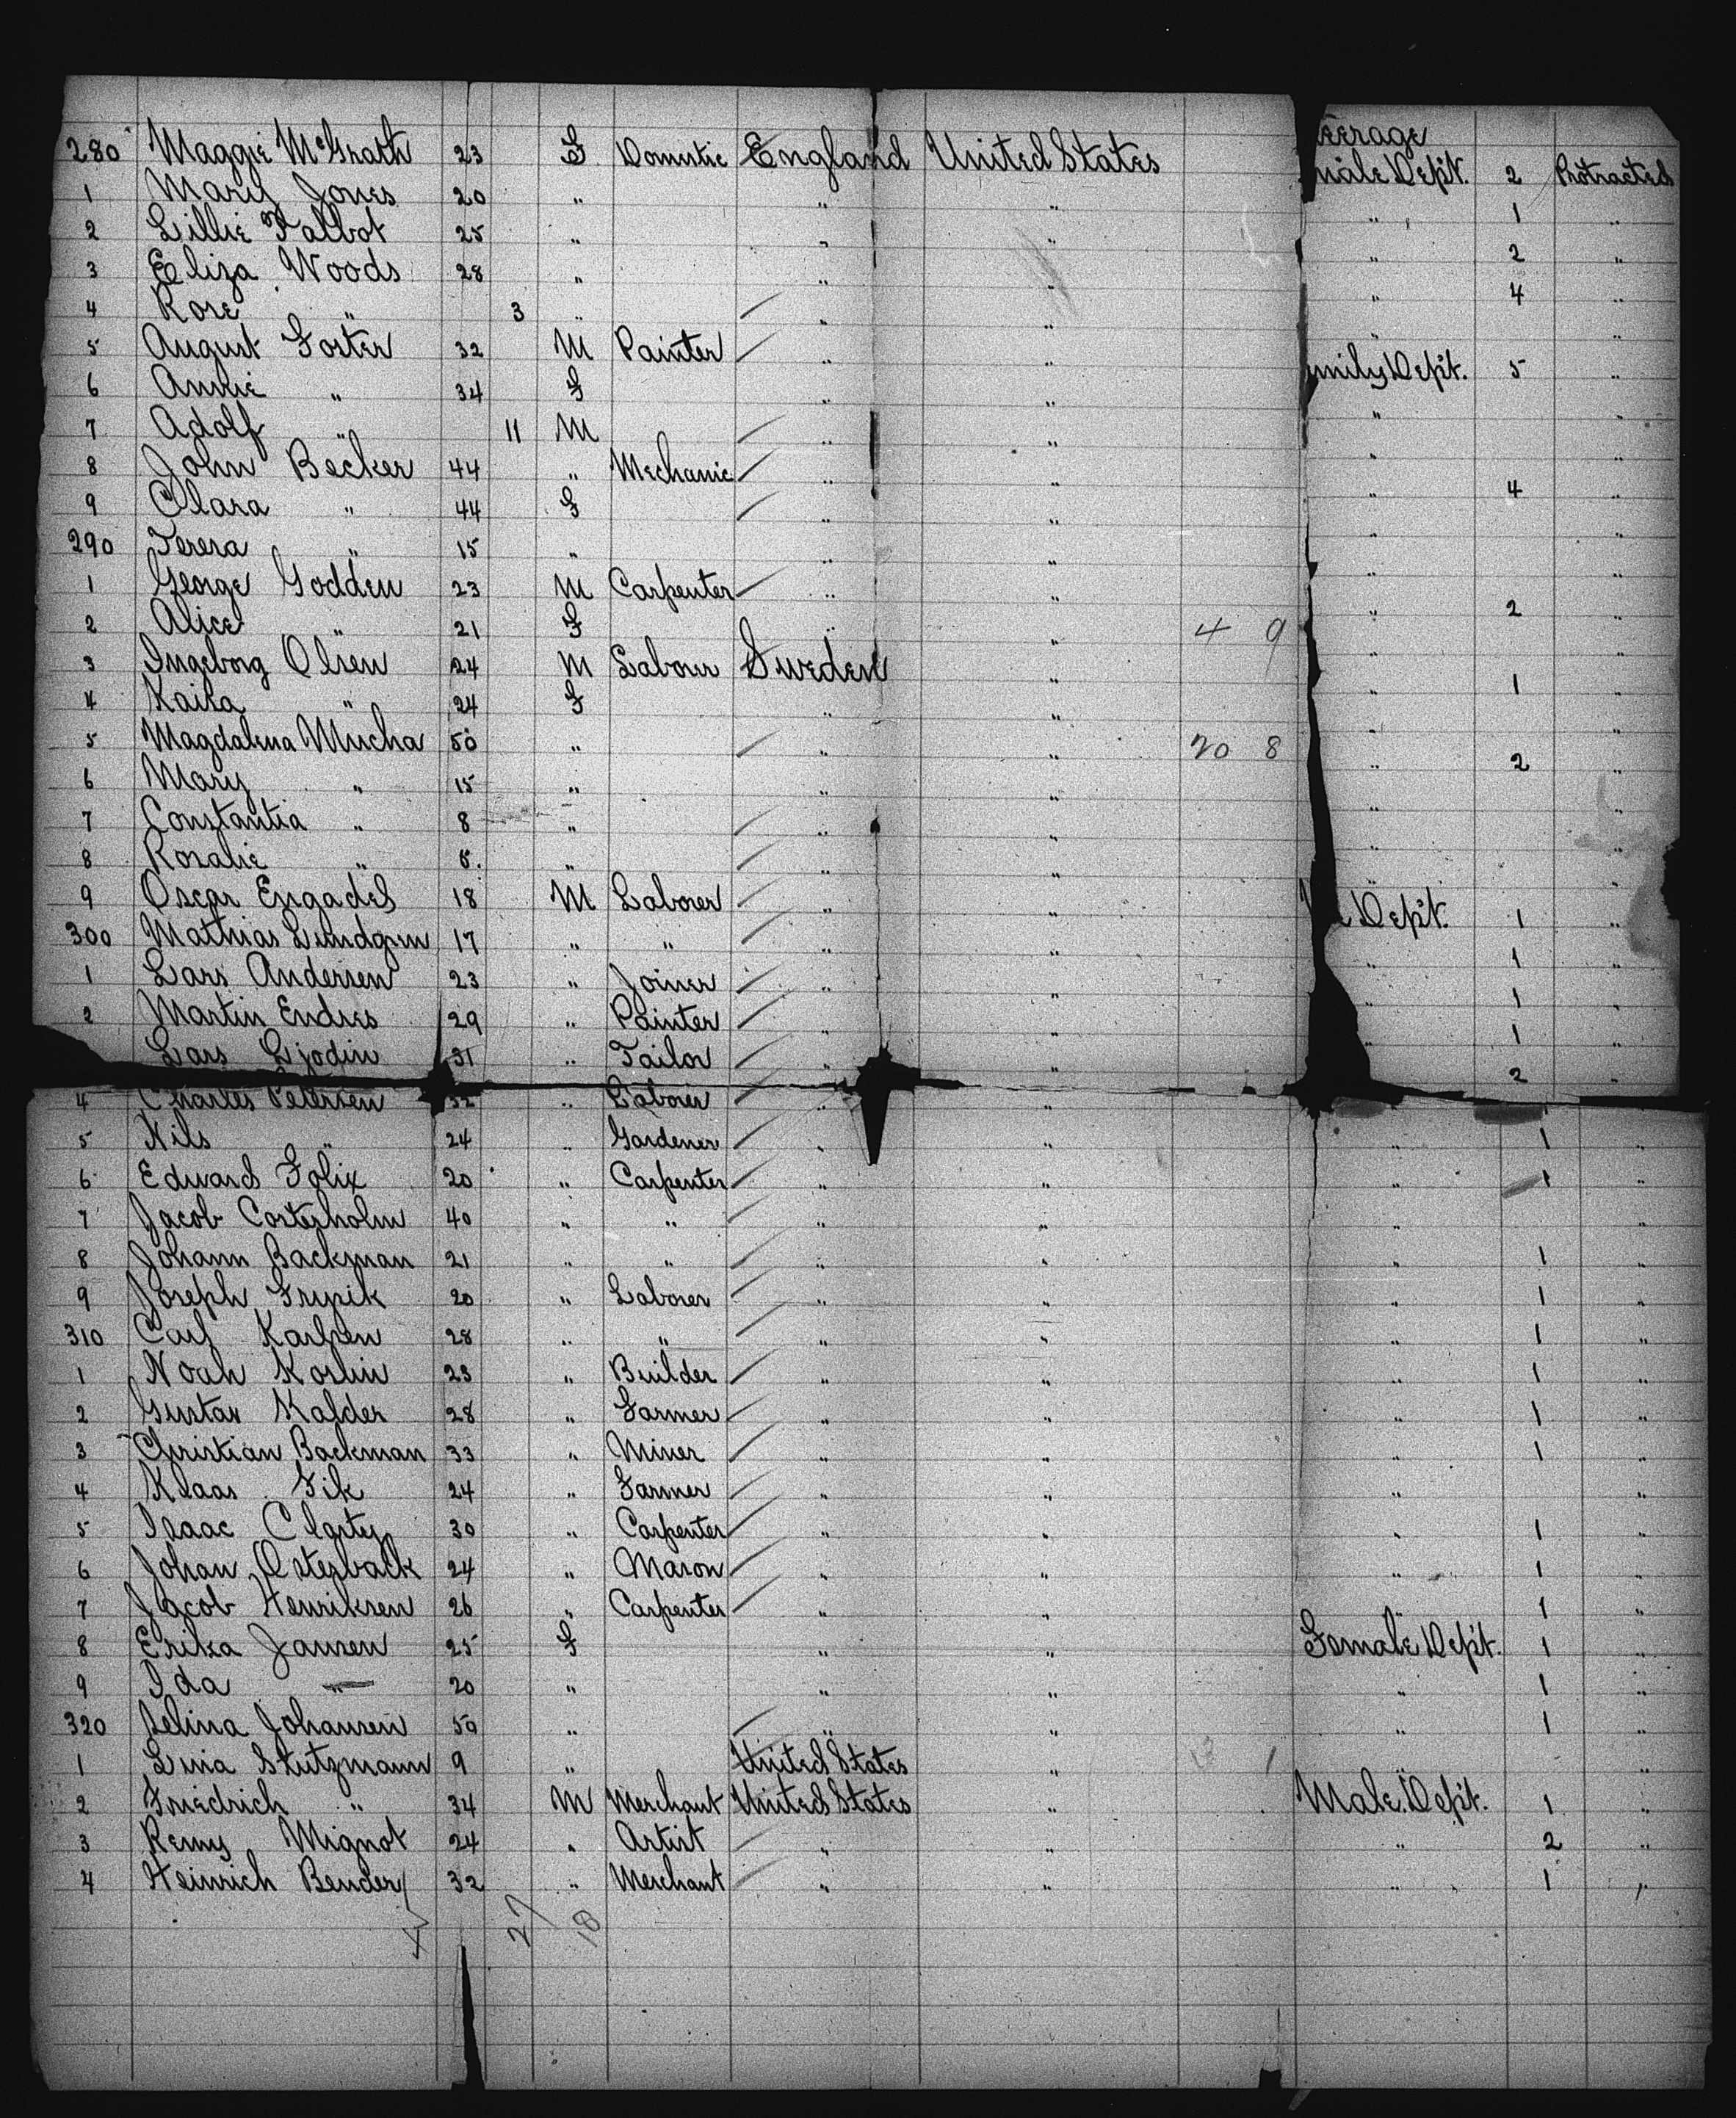 Steerage
280 Maggie McGrath 23 F Domestic England United States Female Dept. 2 Protracted
1 Mary Jones 20 " " " " 1 "
2 Lillie Talbot 25 " " " " 2 "
3 Eliza Woods 28 " " " " 4 "
4 Rose " 3 " " " " "
5 August Forter 32 M Painter " " Family Dept. 5 "
6 Annie " 34 F " " " "
7 Adolf " 11 M " " " "
8 John Becker 44 " Mechanic " " " 4 "
9 Clara " 44 F " " " "
290 Teresa " 15 " " " " "
1 George Godden 23 M Carpenter " " " 2 "
2 Alice " 21 F " " 4 9 " "
3 Ingeborg Olsen 24 M Laborer Sweden " " 1 "
4 Kaisa " 24 F " " " "
5 Magdalena Mucha 50 " " " 20 8 " 2 "
6 Mary " 15 " " " " "
7 Constantia " 8 " " " " "
8 Rosalie " 5 " " " " "
9 Oscar Engadel 18 M Laborer " " Dept. 1 "
300 Mathias Lundgren 17 " " " " " 1 "
1 Lars Andersen 23 " Joiner " " " 1 "
2 Martin Endres 29 " Painter " " " 1 "
Lars Ljodin 31 " Tailor " " 2 "
4 Charles Petersen 32 " Laborer " " " 1 "
5 Nils " 24 " Gardener " " " 1 "
6 Edward Folix 20 " Carpenter " " " 1 "
7 Jacob Costerholm 40 " " " " " "
8 Johann Backman 21 " " " " " 1 "
9 Joseph 20 " Laborer " " " 1 "
310 Carl Karlsen 28 " " " " " 1 "
1 Noah Koslin 23 " Builder " " " 1 "
2 Gustav Kalder 28 " Farmer " " " 1 "
3 Christian Backman 33 " Miner " " " 1 "
4 Klaas Fik 24 " Farmer " " " "
5 Isaac Clasty 30 " Carpenter " " " 1 "
6 Johan Osterback 24 " Mason " " " 1 "
7 Jacob Henriksen 26 " Carpenter " " " 1 "
8 Erika Jansen 25 F " " Female Dept. 1 "
9 Ida " 20 " " " " 1 "
320 Selina Johansen 50 " " " " 1 "
1 Lina Stutzmann 9 " United States " 1 " "
2 Friedrich " 34 M Merchant United States " Male Dept. 1 "
3 Remy Mignot 24 " Artist " " " 2 "
4 Heinrich Bender 32 " Merchant " " " 1 "
27 18